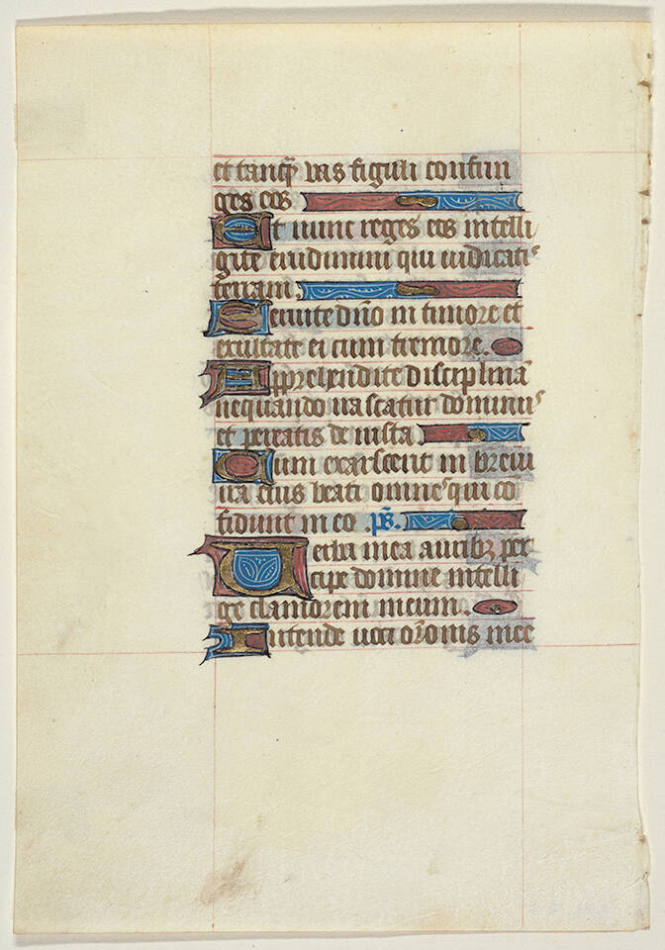 et tanq̃ vas figuli confrin
ges eos
Et nunc reges eos intelli
gite erudimini qui iudicatis
terram.
Seruite dño in timore et
exultate ei cum tremore.
Apprehendite disciplinã
nequando irascatur dominus
et pereatis de iusta
Cum exarserit in breui
ira eius beati omnes qui cõ
fidunt in eo .ps̃.
Verba mea auribꝫ per
cipe domine intelli
ge clamorem meum.
Intende uoci orõnis mee